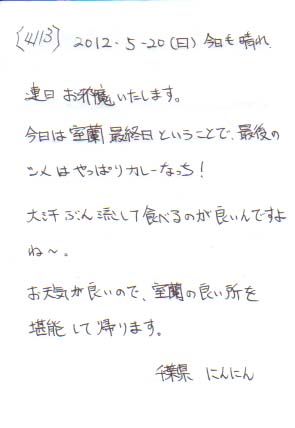 {4113} 2012.5-20(日) 今日も晴れ.
連日 お邪魔いたします。
今日は室蘭最終日ということで、最後の
シメはやっぱりカレーなっち!
大汗ぶん流して食べるのが良いんですよ
ね～。
お天気が良いので、室蘭の良い所を
堪能して帰ります。
千葉県 にんにん